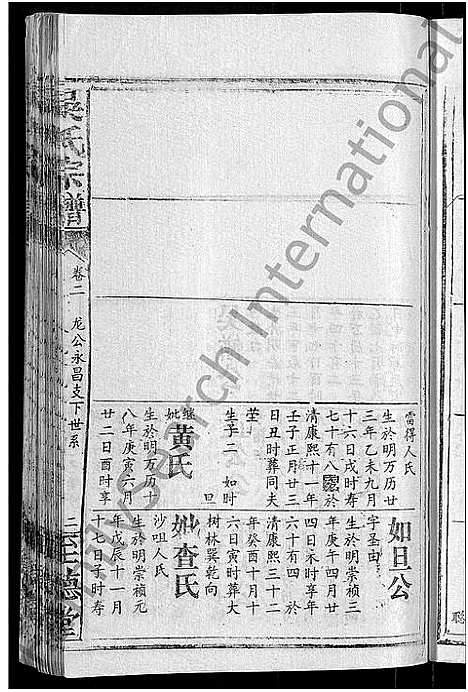 吴氏宗譜
卷二
龙公永昌支下世系
雷得人氏
生於明万历廿
三年乙未九月
十六日戌时寿
七十有八殁於
清康熙十一年
壬子正月廿三
日丑时葬同夫
茔
生子二 如时
旦
继妣黄氏
生於明万历十
八年庚寅六月
廿二日酉时享
如旦公
字圣由
生於明崇祯三
年庚午四月廿
四日未时享年
六十有四 於
清康熙三十二
年癸酉十月十
六日寅时葬大
树林巽乾向
妣查氏
沙咀人氏
生於明崇祯元
年戊辰十一月
十七日子时寿
德堂
聪
mysearch International